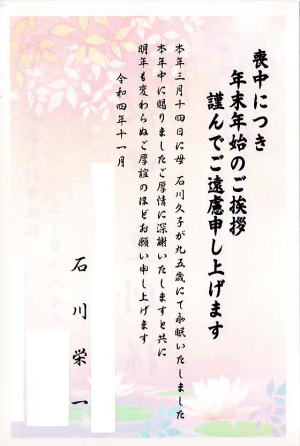 喪中につき
年末年始のご挨拶
謹んでご遠慮申し上げます
本年三月十四日に母 石川久子が九五歳にて永眠いたしました
本年中に賜りましたご厚情に深謝いたしますと共に
明年も変わらぬご厚誼のほどお願い申し上げます
令和四年十一月
石川栄一